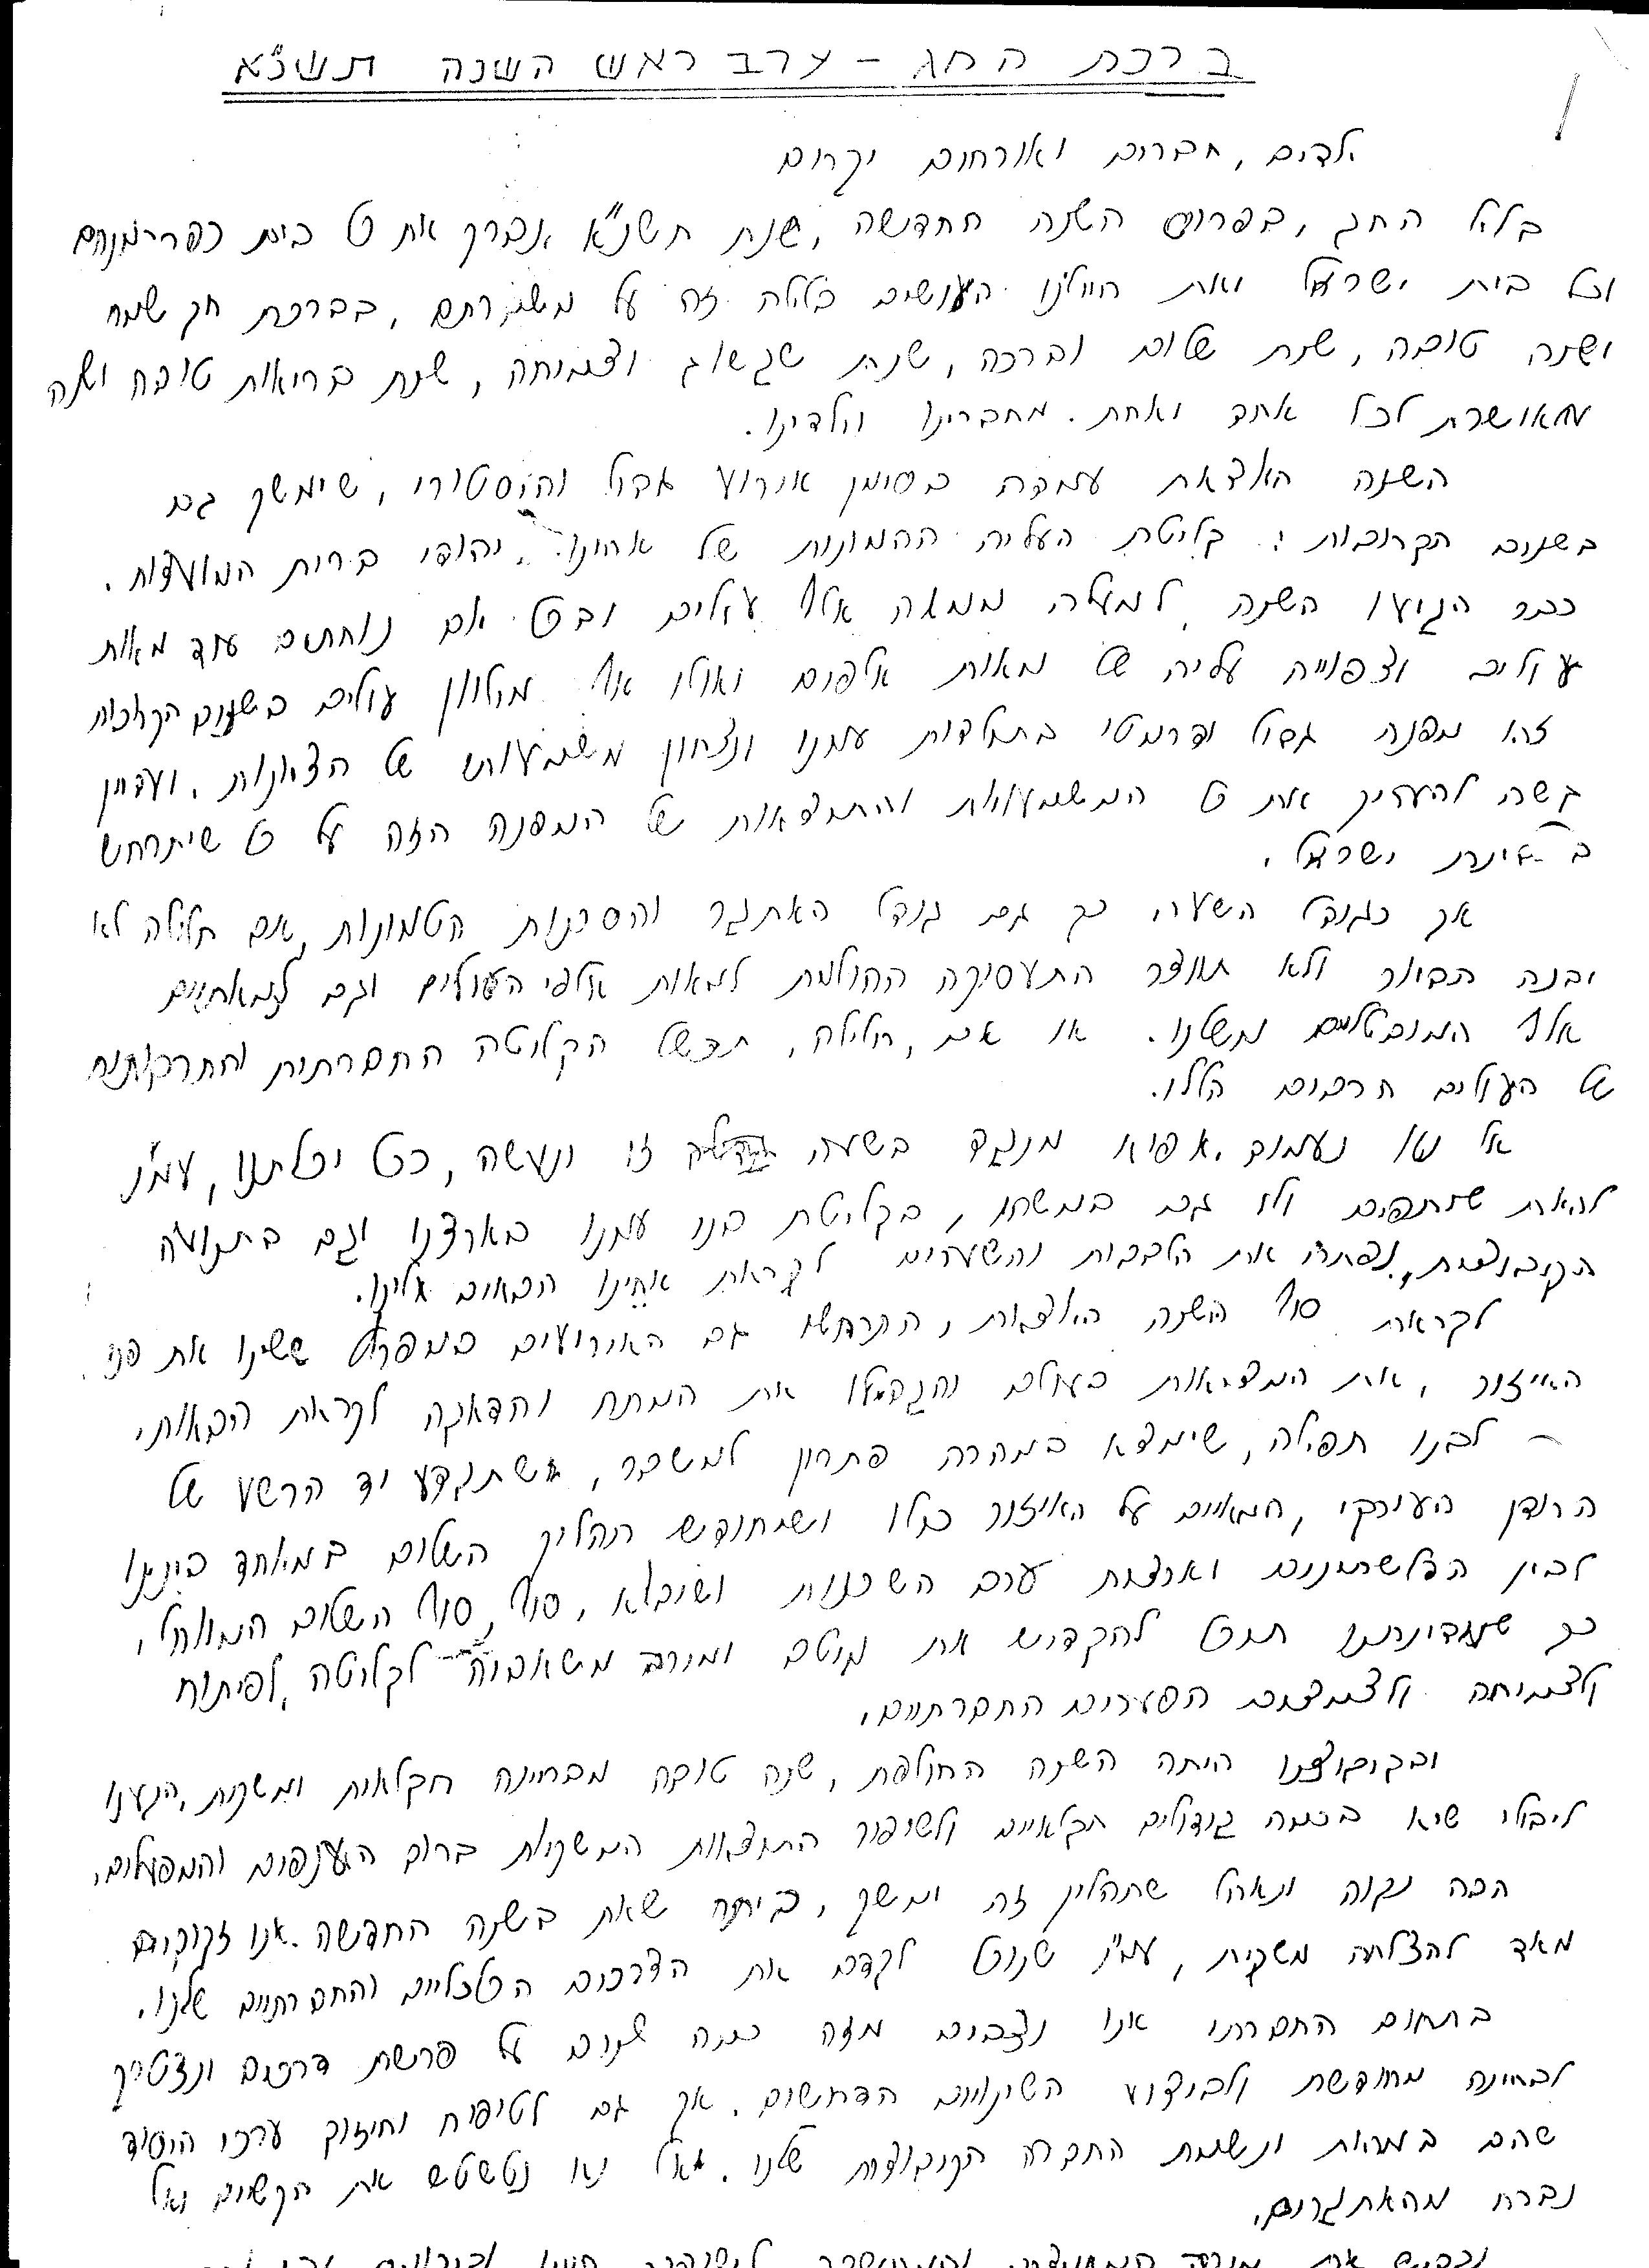 ברכת החג – ערב ראש השנה תשנ"א
ילדים, חברים ואורחים יקרים
בליל החג, בפרוס השנה החדשה, שנת תשנ"א נברך את כל בית כפר-מנחם
וכל בית ישראל ואת חיילנו העושים בלילה זה על משמרתם, בברכת חג שמח
ושנה טובה, שנת שלום וברכה, שנת שגשוג וצמיחה, שנת בריאות טובה ושנה
מאושרת לכל אחד ואחת מחברינו וילדינו.
השנה היוצאת עמדה בסימן אירוע גדול והיסטורי, שימשך גם
בשנים הקרובות: קליטת העליה ההמונית של אחינו, יהודי ברית המועצות.
כבר הגיעו השנה למעלה ממאה אלף עולים ובכל יום נוחתים עוד מאות
עולים וצפוייה עליה של מאות אלפים ואולי אף מיליון עולים בשנים הקרובות
זהו מפנה גדול ודרמטי בתולדות עמנו ונצחון משמעותי של הציונות. ועדיין
קשה להעריך את כל המשמעויות והתוצאות של המפנה הזה על כל שיתרחש
במדינת ישראל.
אך כגודל השעה כך גם גודל האתגר והסכנות הטמונות, אם חלילה לא
יבנה הדיור ולא תווצר התעסוקה ההולמת למאות אלפי העולים וגם למאתיים
אלף המובטלים משלנו. או אם, חלילה, תכשל הקליטה החברתית והתרבותית
של העולים הרבים הללו.
אל נא נעמוד איפוא מנגד בשעה גדולה זו ונעשה, ככל יכלתנו, ע"מ
להיות שותפים ולו גם במשהו, בקליטת בני עמנו בארצנו וגם בתנועה
הקיבוצית, נפתח את הלבבות והשערים לקראת אחינו הבאים אלינו.
לקראת סוף השנה היוצאת, התרחשו גם האירועים במפרץ ששינו את פני
האיזור, את המציאות בעולם והגדילו את המתח והדאגה לקראת הבאות.
– לבנו תפילה, שימצא במהרה פתרון למשבר, שתגדע יד הרשע של
הרודן העירקי, המאיים על האיזור כולו ושיחודש תהליך השלום במיוחד ביננו
לבין הפלשתינים וארצות ערב השכנות ושיבוא, סוף, סוף השלום המיוחל,
כך שמדינתנו תוכל להקדיש את מיטב ומירב משאביה לקליטה, לפיתוח
ולצמיחה ולצמצום הפערים החברתיים.
ובקיבוצנו היתה השנה החולפת, שנה טובה מבחינה חקלאית ומשקית. הגענו
ליבולי שיא בכמה גידולים חקלאיים ולשיפור התוצאות המשקיות ברוב הענפים והמפעלים.
הבה נקוה ונאחל שתהליך זה ימשך, ביתר שאת בשנה החדשה. אנו זקוקים
מאד להצלחה משקית, ע"מ שנוכל לקדם את הצרכים הכלכליים והחברתיים שלנו.
בתחום החברתי אנו נצבים מזה כמה שנים על פרשת דרכים ונצטרך
לבחינה מחודשת ולביצוע השינויים הדרושים. אך גם לטיפוח וחיזוק ערכי היסוד
שהם במהות ונשמת החברה הקיבוצית שלנו. אל נא נטשטש את הקשיים ואל
נברח מהאתגרים.